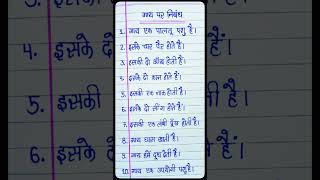 गाय पर निबंध
1. गाय एक पालतू पशु है।
2. इसके चार पैर होते हैं।
3. इसकी दो आँख होती हैं।
4. इसके दो कान होते हैं।
5. इसकी एक नाक होती है।
6. इसके दो सींग होते हैं।
7. इसकी एक लंबी पूँछ होती है।
8. गाय घास खाती है।
9. गाय हमें दूध देती है।
10. गाय एक उपयोगी पशु है।
4. इसके दो
5. इसकी
6. इसके दो